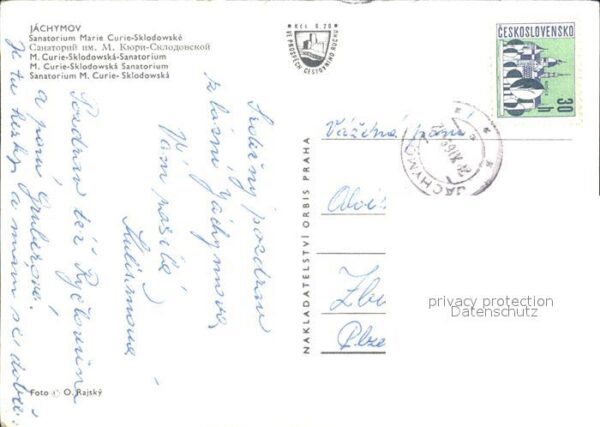 JÁCHYMOV
Sanatorium Marie Curie-Sklodowské
Санаторий им. М. Кюри-Склодовской
M. Curie-Sklodowská-Sanatorium
M. Curie-Sklodowská Sanatorium
Sanatorium M. Curie- Sklodowská
Kčs 0,70
VE PROSPĚCH CESTOVNÍHO RUCHU
ČESKOSLOVENSKO
30 h
JÁCHYMOV
Srdečný pozdrav
z lázní Jáchymova
Vám posílá
Pozdrav též
a paní Gruberová.
Je tu hezky a mám se dobře.
Vážená paní
Plze
NAKLADATELSTVÍ ORBIS PRAHA
privacy protection
Datenschutz
Foto © O. Rajský